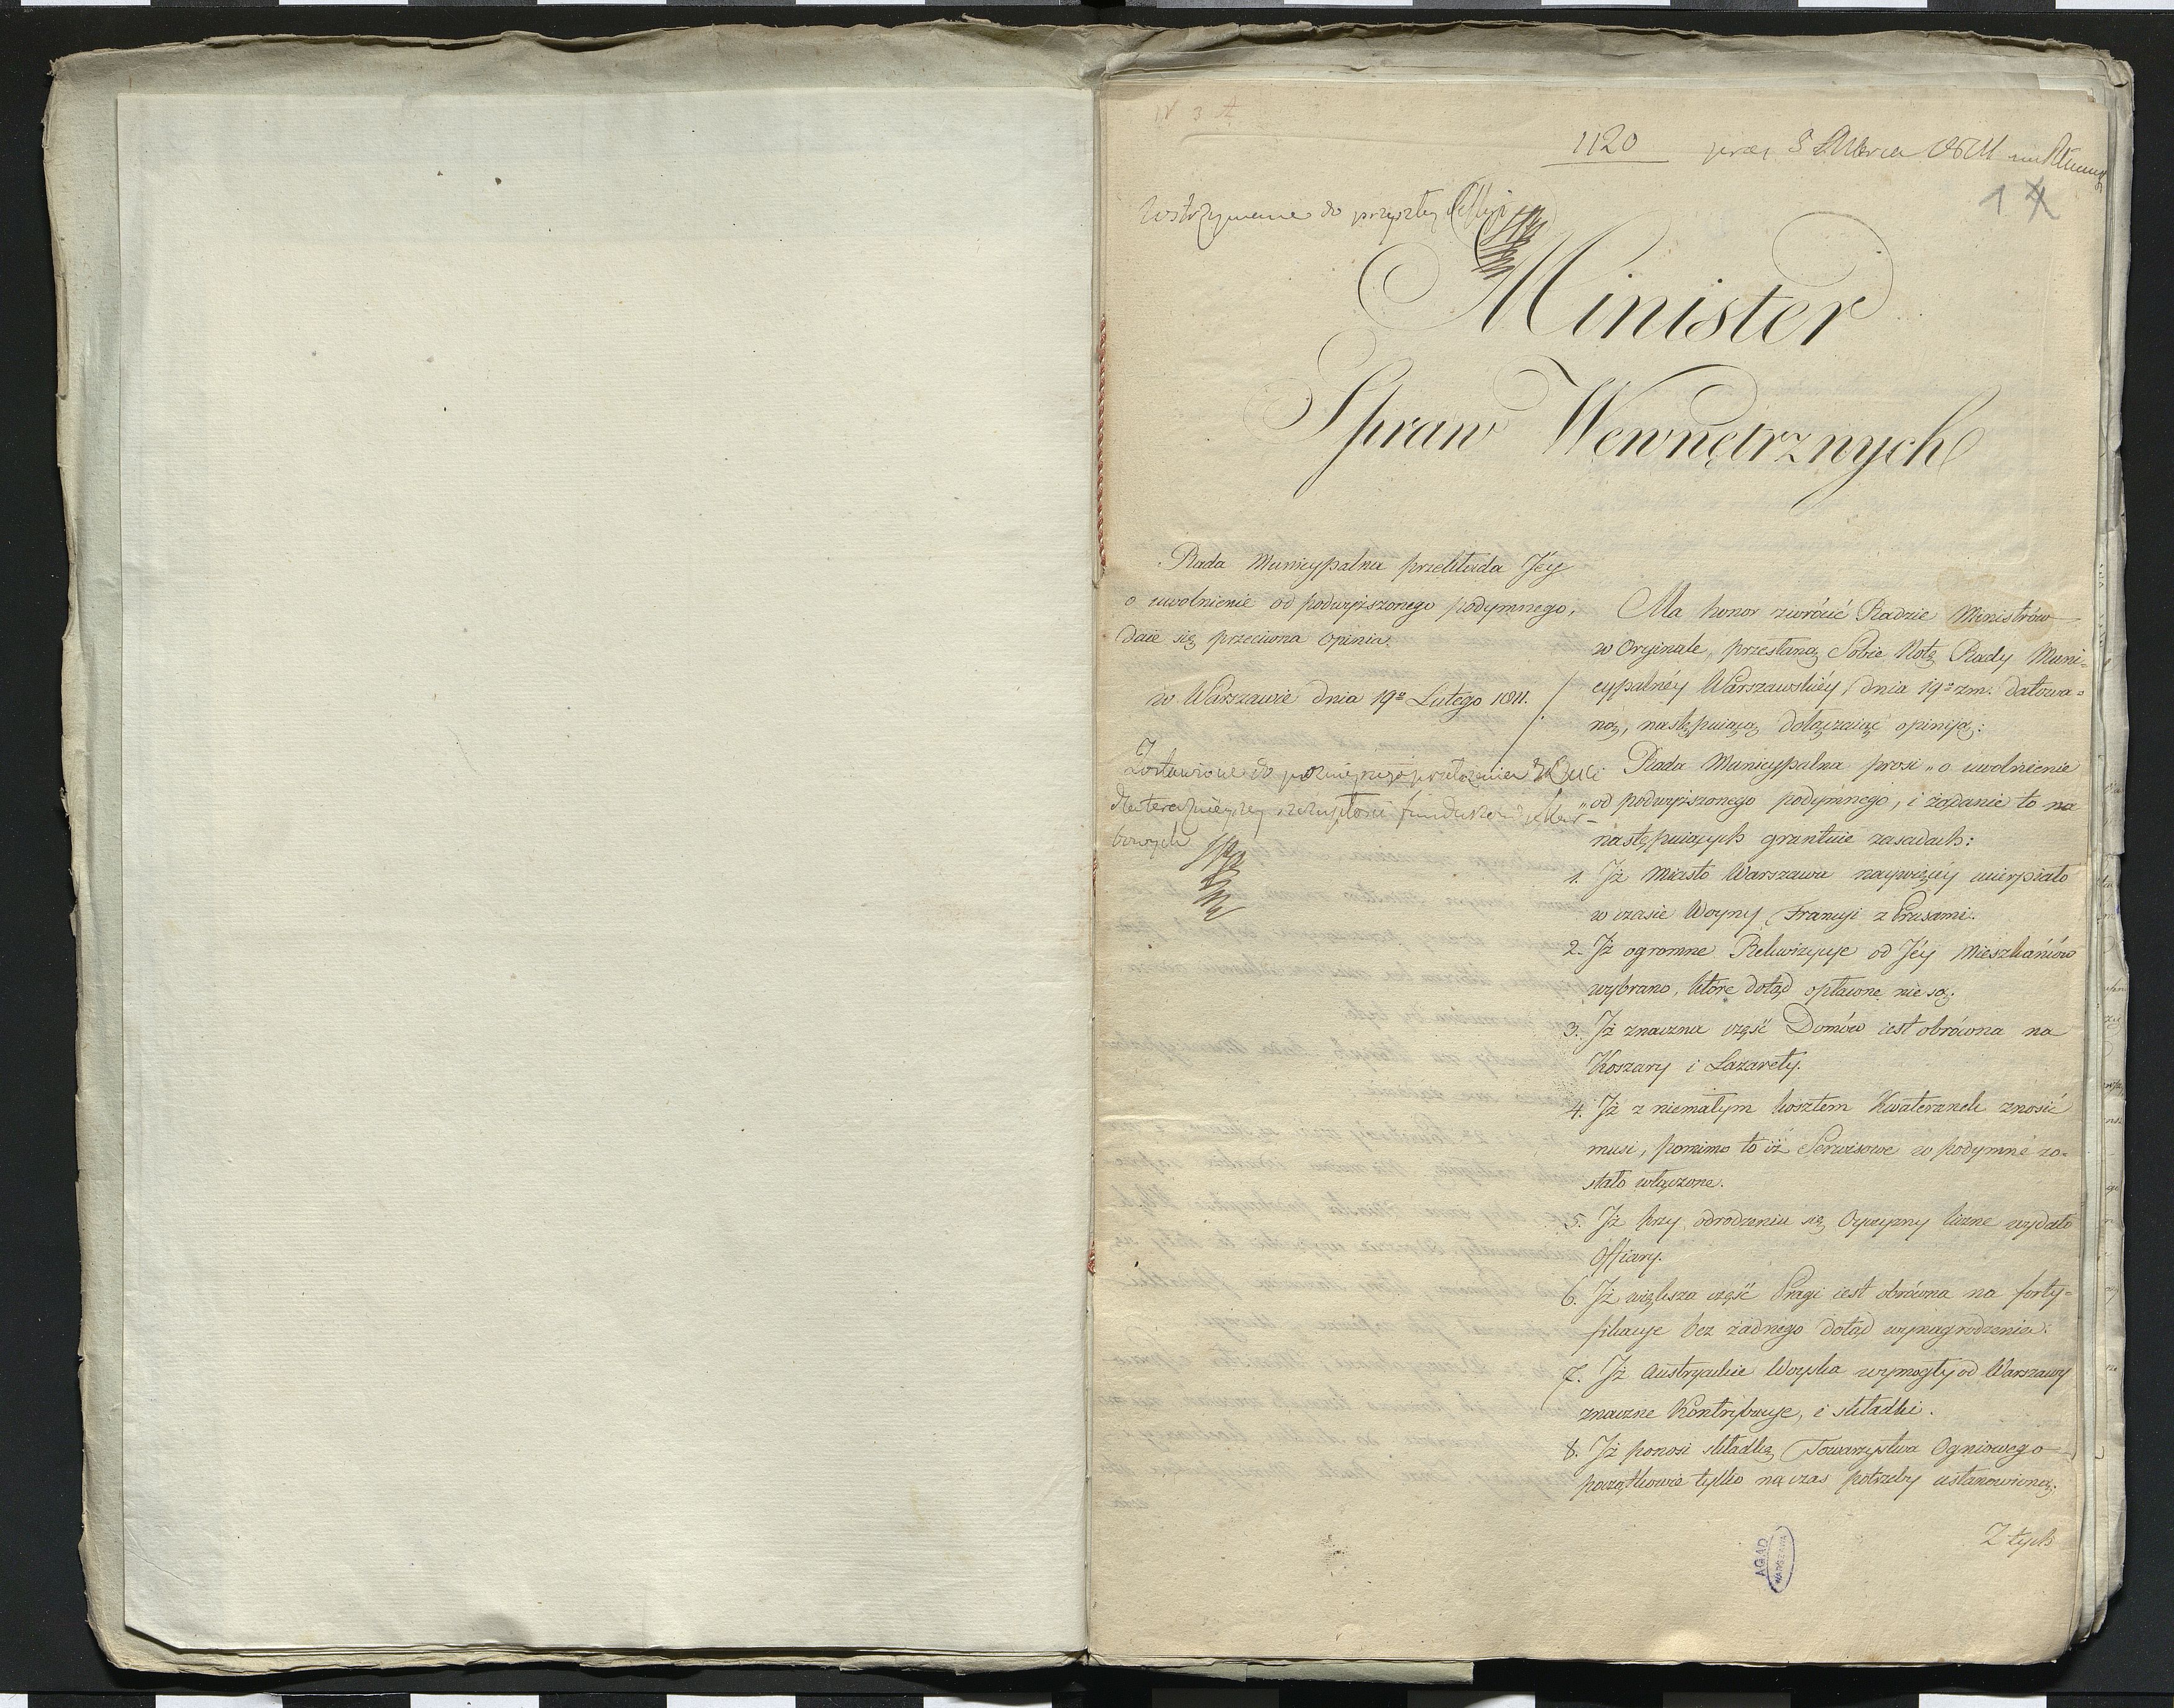 N 3 A
1120
prez 5 Marca 1811
1
Wstrzymane do przyszłey Sessyi
Minister
Spraw Wewnętrznych
Rada Municypalna przekłada Jéy
o uwolnienie od podwyższonego podymnego,
daie się przeciwna opinia.
w Warszawie dnia 19º Lutego 1811.
Zostawione do poźnieyszego przełożenia
dla teraźnieyszey szczupłości funduszów skar-
bowych
Ma honor zwrócić Radzie Ministrów
w Oryginale, przesłaną Sobie Notę Rady Muni-
cypalnéy Warszawskiéy, dnia 19º zm. datowa-
ną, następuiącą dołączaiąc opiniją:
Rada Municypalna prosi „o uwolnienie
„od podwyższonego podymnego, i żądanie to na
następuiących gruntuie zasadach:
1. Iż Miasto Warszawa naywięcéy ucierpiało
w czasie Woyny Francyi z Prusami.
2. Iż ogromne Rekwizycye od Jéy Mieszkańców
wybrano, które dotąd opłacone nie są.
3. Iż znaczna część Domów iest obrócona na
Koszary i Lazarety.
4. Iż z niemałym kosztem Kwaterunek znosić
musi, pomimo to iż Serwisowe w podymné zo-
stało włączone.
5. Iż przy odrodzeniu się Oyczyzny liczne wydało
Offiary.
6. Iż większa część Pragi iest obrócona na forty-
fikacye bez żadnego dotąd wynagrodzenia.
7. Iż Austryackie Woyska wymogły od Warszawy
znaczne Kontrybucye, i składki.
8. Iż ponosi składkę Towarzystwa Ogniowego
początkowie tylko na czas potrzeby ustanowioną.
Z tych
AGAD
WARSZAWA